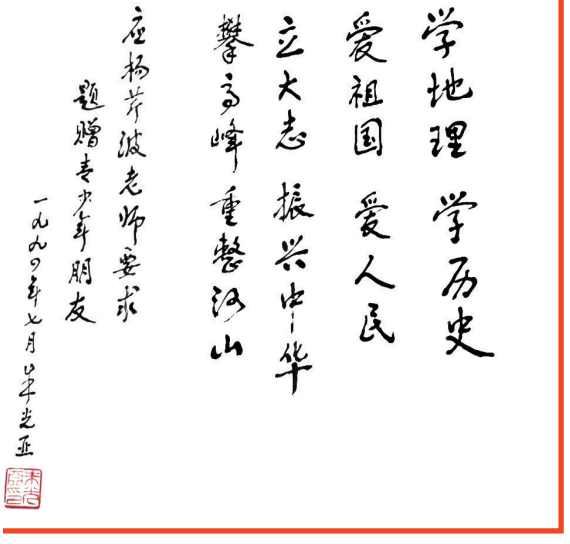 学地理 学历史
爱祖国 爱人民
立大志 振兴中华
攀高峰 重整河山
应杨芹波老师要求
题赠青少年朋友
一九九四年七月 朱光亚
朱光亚印